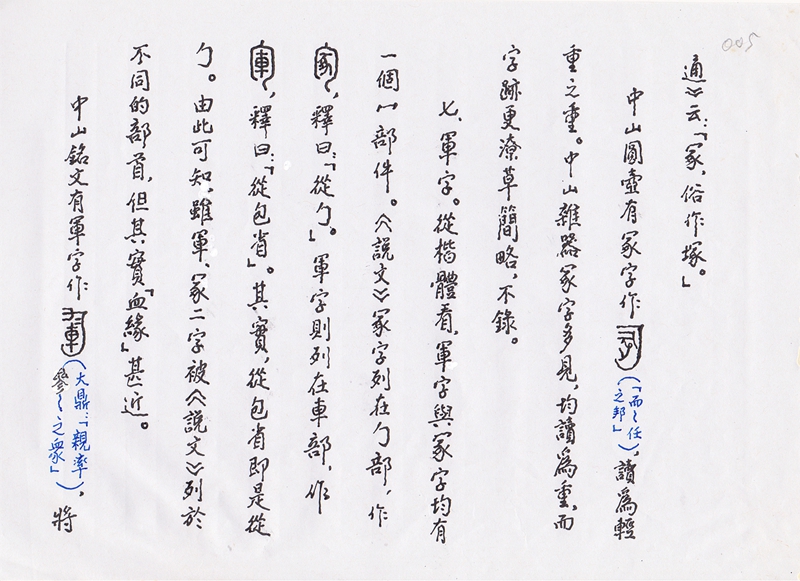 005
通》云：「冢，俗作塚。」
中山圓壺有冢字作（「而〻任之邦」），讀為輕
重之重。中山雜器冢字多見，均讀為重，而
字跡更潦草簡略，不錄。
七、軍字。從楷體看，軍字與冢字均有
一個冖部件。《說文》冢字列在勹部，作
，釋曰：「從勹。」軍字則列在車部，作
，釋曰：「從包省」。其實，從包省即是從
勹。由此可知，雖軍、冢二字被《說文》列於
不同的部首，但其實「血緣」甚近。
中山銘文有軍字作（大鼎：「親率〻之眾」），將